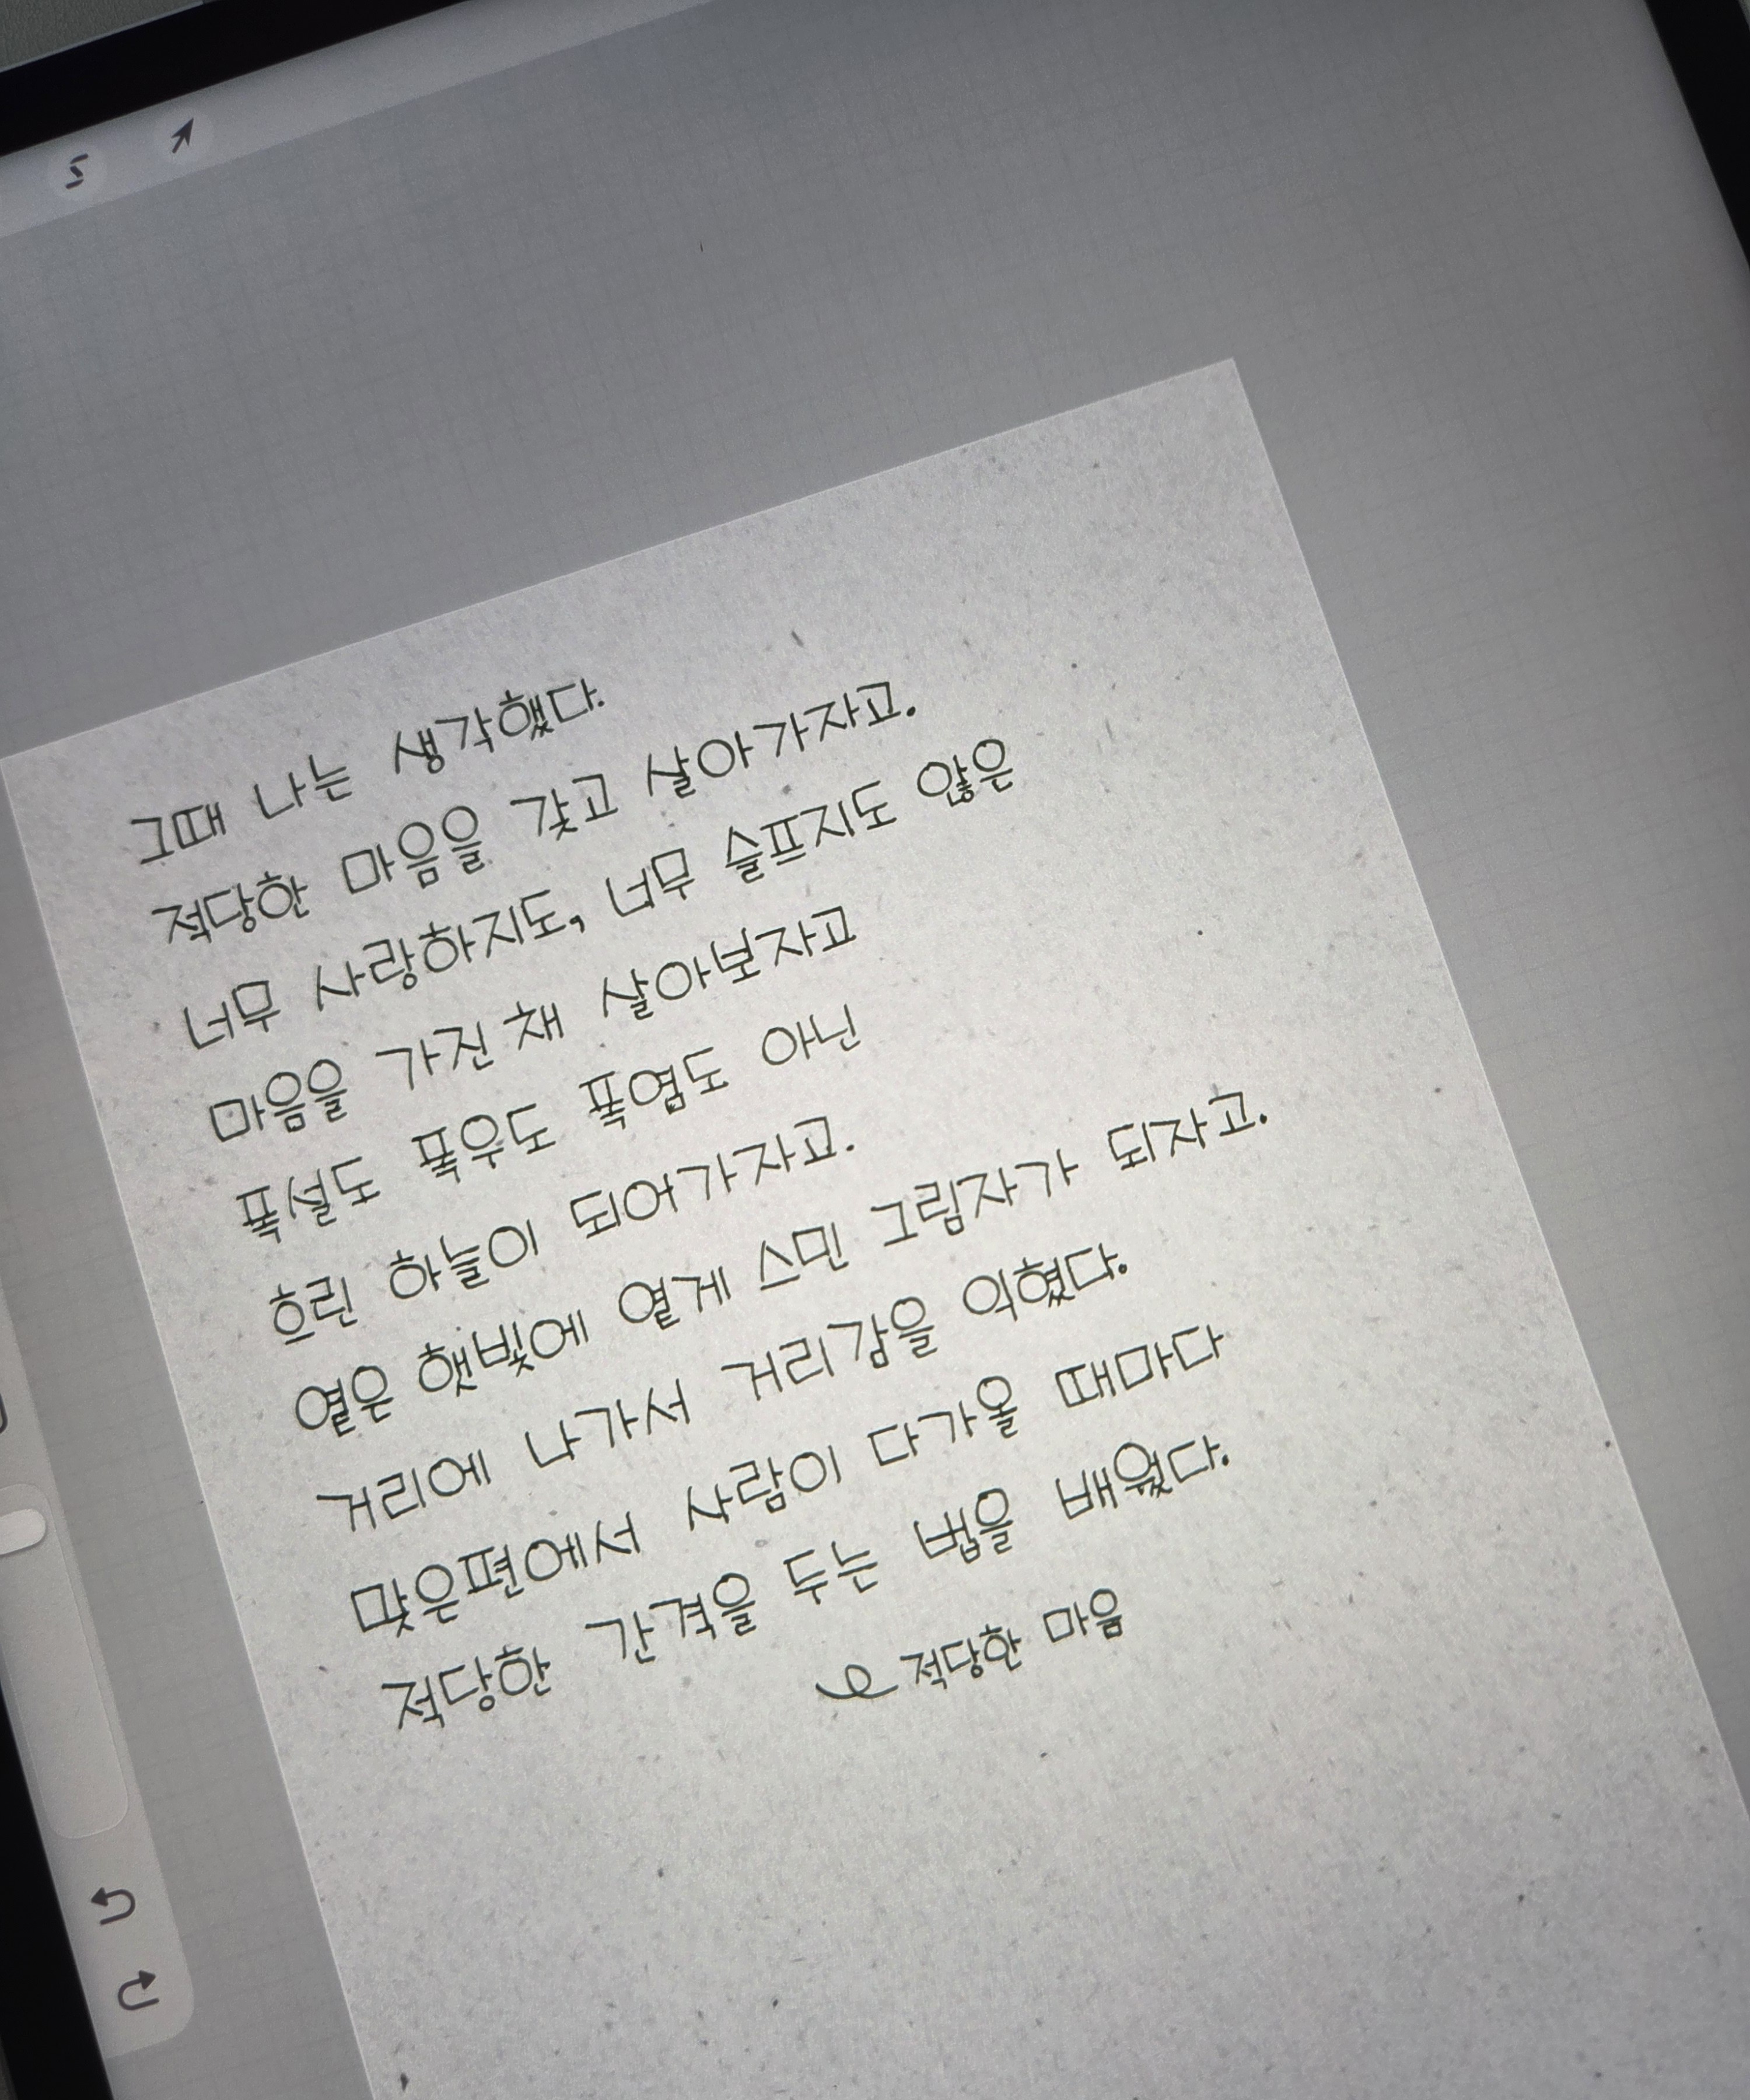 그때 나는 생각했다.
적당한 마음을 갖고 살아가자고.
너무 사랑하지도, 너무 슬프지도 않은
마음을 가진 채 살아보자고
폭설도 폭우도 폭염도 아닌
흐린 하늘이 되어가자고.
옅은 햇빛에 옅게 스민 그림자가 되자고.
거리에 나가서 거리감을 익혔다.
맞은편에서 사람이 다가올 때마다
적당한 간격을 두는 법을 배웠다.
적당한 마음